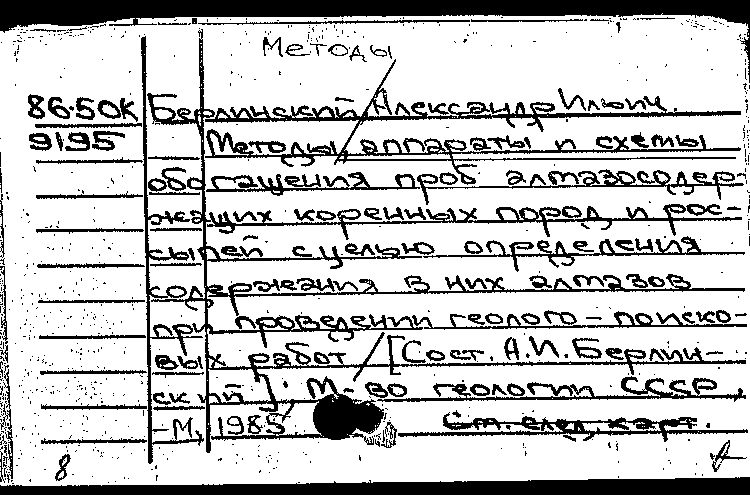 Методы
86-50К Берлинский, Александр Ильич.
9195 Методы, аппараты и схемы
обогащения проб алмазосодер-
жащих коренных пород и рос-
сыпей с целью определения
содержания в них алмазов
при проведении геолого-поиско-
вых работ / [Сост. А.И. Берлин-
ский]; М-во геологии СССР,
-М., 1985
См. след. карт.
8